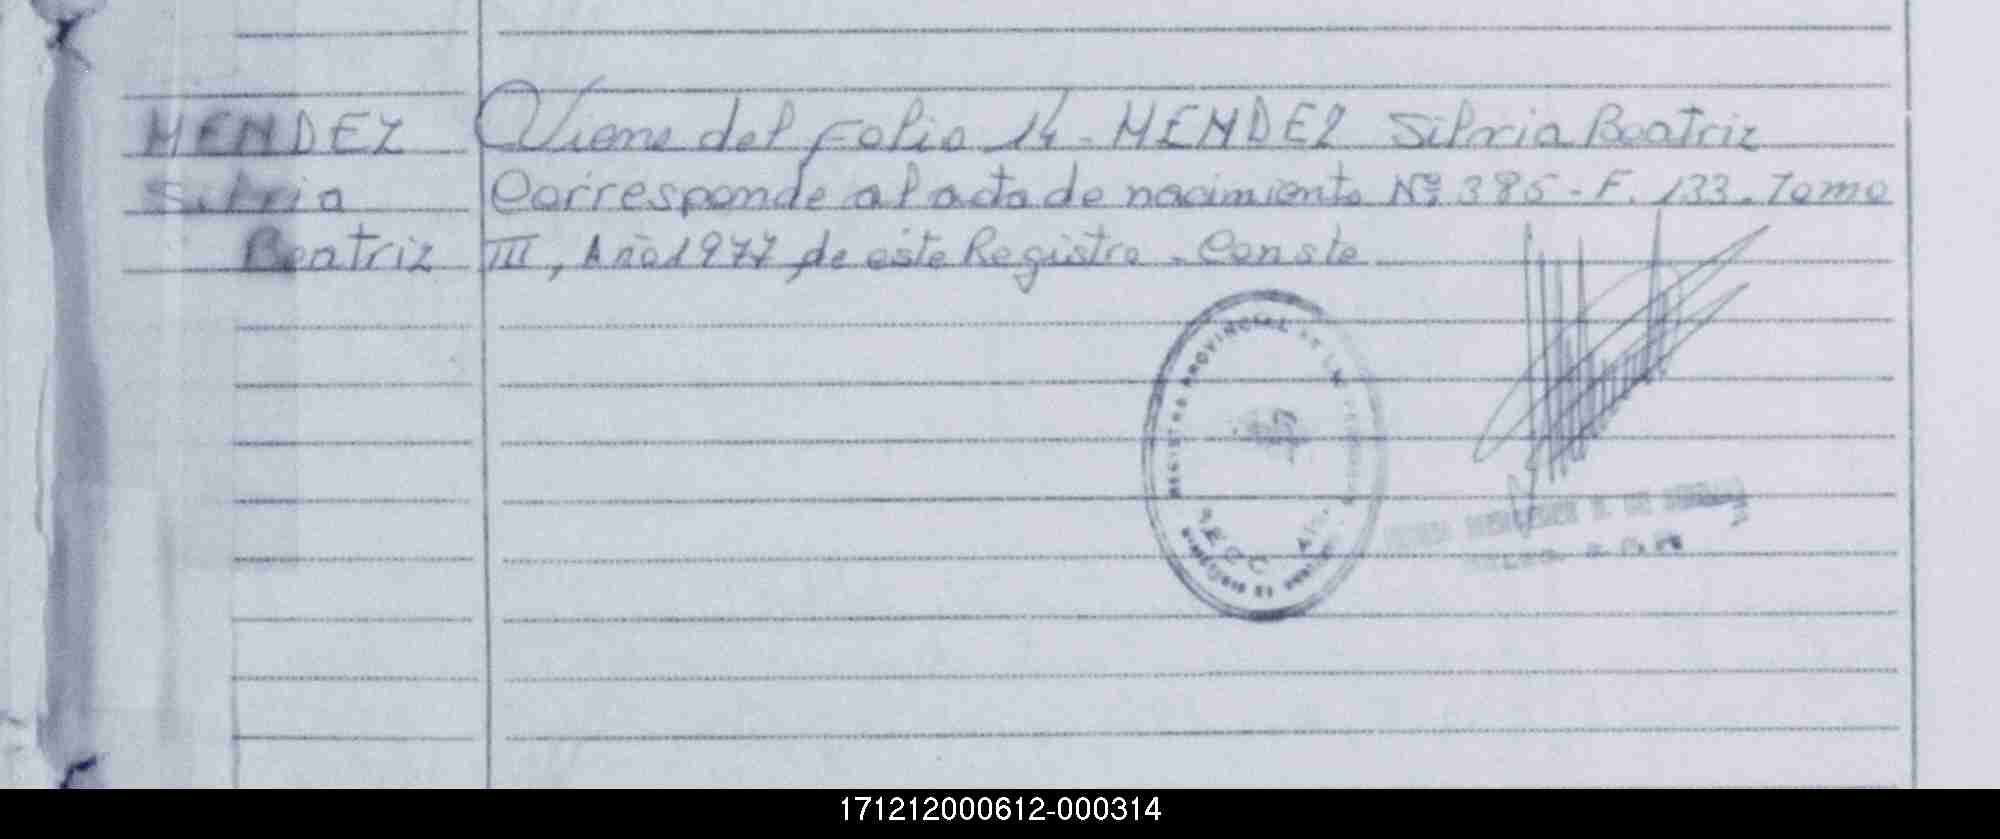 MENDEZ Silvia Beatriz
Viene del Folio 14 - MENDEZ Silvia Beatriz
Corresponde al acta de nacimiento Nº 385 - F. 133. Tomo
III, Año 1977 de este Registro - Conste
REGISTRO PROVINCIAL DE LAS PERSONAS
171212000612-000314